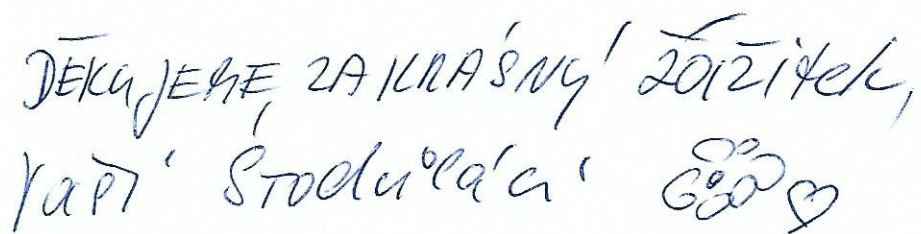 DĚKUJEME, ZA KRÁSNÝ zážitek,
Vaši Štodůláci